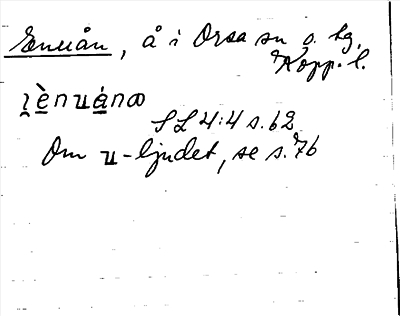 Enuån, å i Orsa sn o. hg,
Kopp. l.
ı̯ènuánɷ
SL 4:4 s. 62
Om u-ljudet, se s. 76